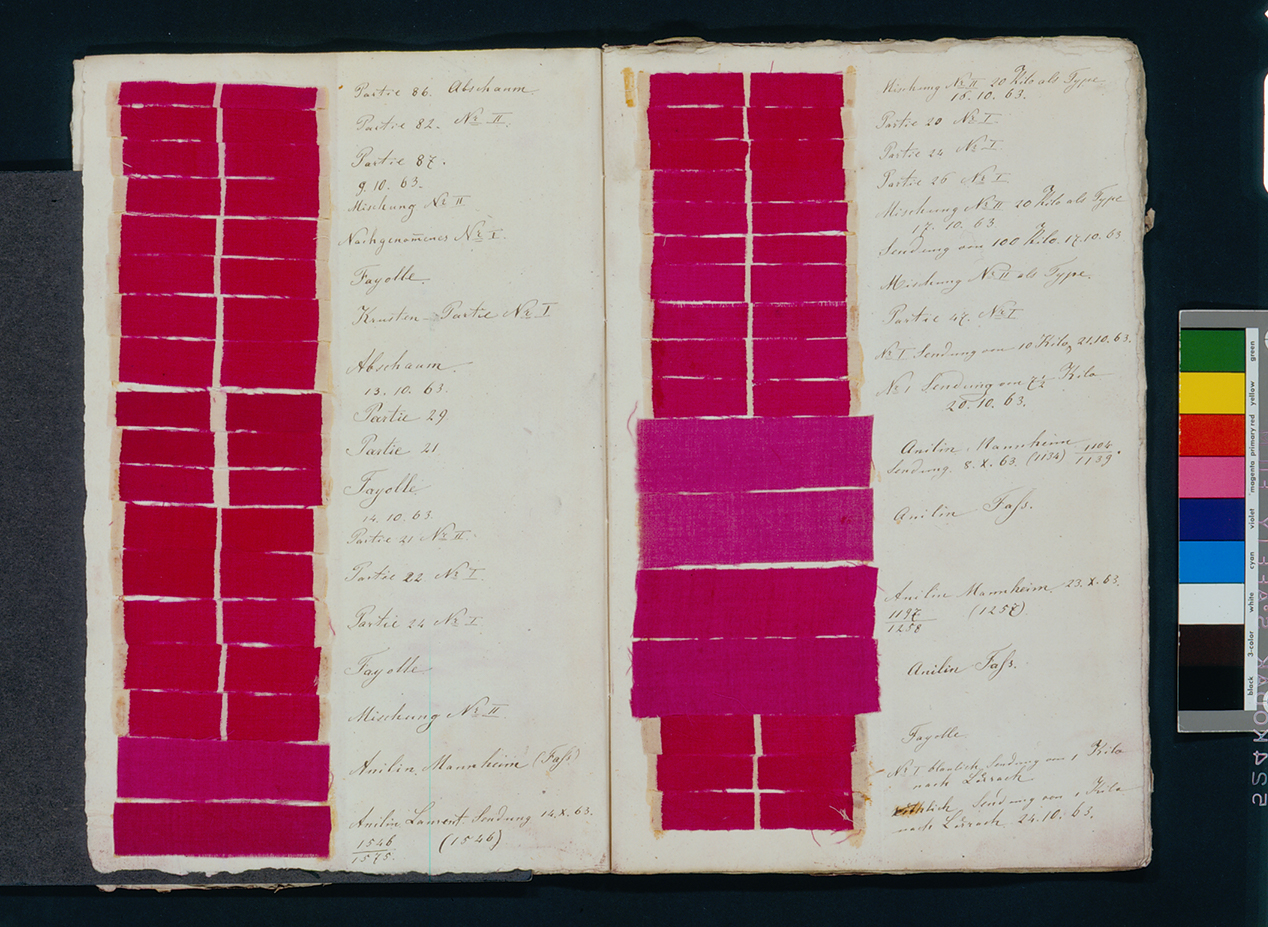 Partie 86. Abschaum
Partie 82. No II.
Partie 87.
9. 10. 63.
Mischung No II
Nachgenom̅enes No I.
Fayolle.
Krusten-Partie No I
Abschaum.
13. 10. 63.
Partie 29
Partie 21
Fayolle
14. 10. 63.
Partie 21 No II.
Partie 22. No I.
Partie 24 No I.
Fayolle
Mischung No II.
Anilin. Mannheim (Faſs)
Anilin Sendung 14. X. 63.
1546 (1546)
1575.
Mischung No II 20 Kilo als Type
16. 10. 63.
Partie 20 No I.
Partie 24 No I.
Partie 26 No I
Mischung No II 20 Kilo als Type
17. 10. 63.
Sendung von 100 Kilo. 17. 10. 63
Mischung No II als Type.
Partie 47. No I
No I Sendung von 10 Kilo, 21. 10. 63.
No I Sendung von 7½ Kilo
20. 10. 63.
Anilin. Mannheim 1104
Sendung. 8. X. 63. (1134) 1139.
Anilin Faſs.
Anilin Mannheim. 23. X. 63.
1197 (1257)
1258
Anilin Faſs.
Fayolle.
No I blaulich, Sendung von 1 Kilo
nach Lörrach
röthlich, Sendung von 1 Kilo
nach Lörrach. 24. 10. 63.
green
yellow
primary red
magenta
violet
cyan
white
3-color
black
524 KODAK SAFETY